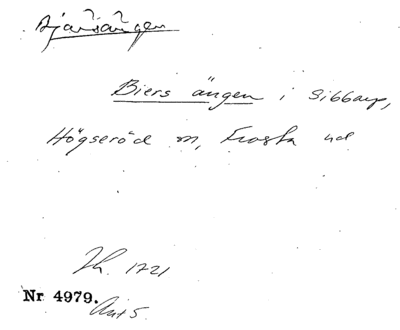 Bjärsängen
Biers ängen i Sibbarp,
Högseröd sn, Frosta hd
Jh. 1721
Nr 4979.